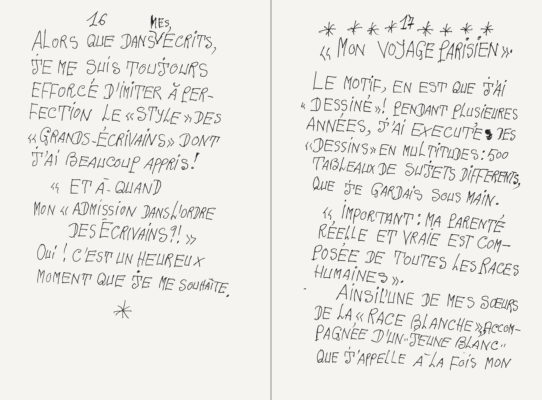 16
ALORS QUE DANS MES ÉCRITS,
JE ME SUIS TOUJOURS
EFFORCÉ D'IMITER À PER-
FECTION LE «STYLE» DES
«GRANDS-ÉCRIVAINS» DONT
J'AI BEAUCOUP APPRIS!
« ET À-QUAND
MON « ADMISSION DANS L'ORDRE
DES ÉCRIVAINS?! »
OUI! C'EST UN HEUREUX
MOMENT QUE JE ME SOUHAITE.
17
« MON VOYAGE PARISIEN ».
LE MOTIF, EN EST QUE J'AI
« DESSINÉ »! PENDANT PLUSIEURES
ANNÉES, J'AI EXECUTÉ DES
«DESSINS» EN MULTITUDES: 500
TABLEAUX DE SUJETS DIFFERENTS,
QUE JE GARDAIS SOUS MAIN.
« IMPORTANT: MA PARENTÉ
RÉELLE ET VRAIE EST COM-
POSÉE DE TOUTES LES RACES
HUMAINES ».
AINSI L'UNE DE MES SŒURS
DE LA « RACE BLANCHE », ACCOM-
PAGNÉE D'UN "JEUNE BLANC"
QUE J'APPELLE À LA FOIS MON